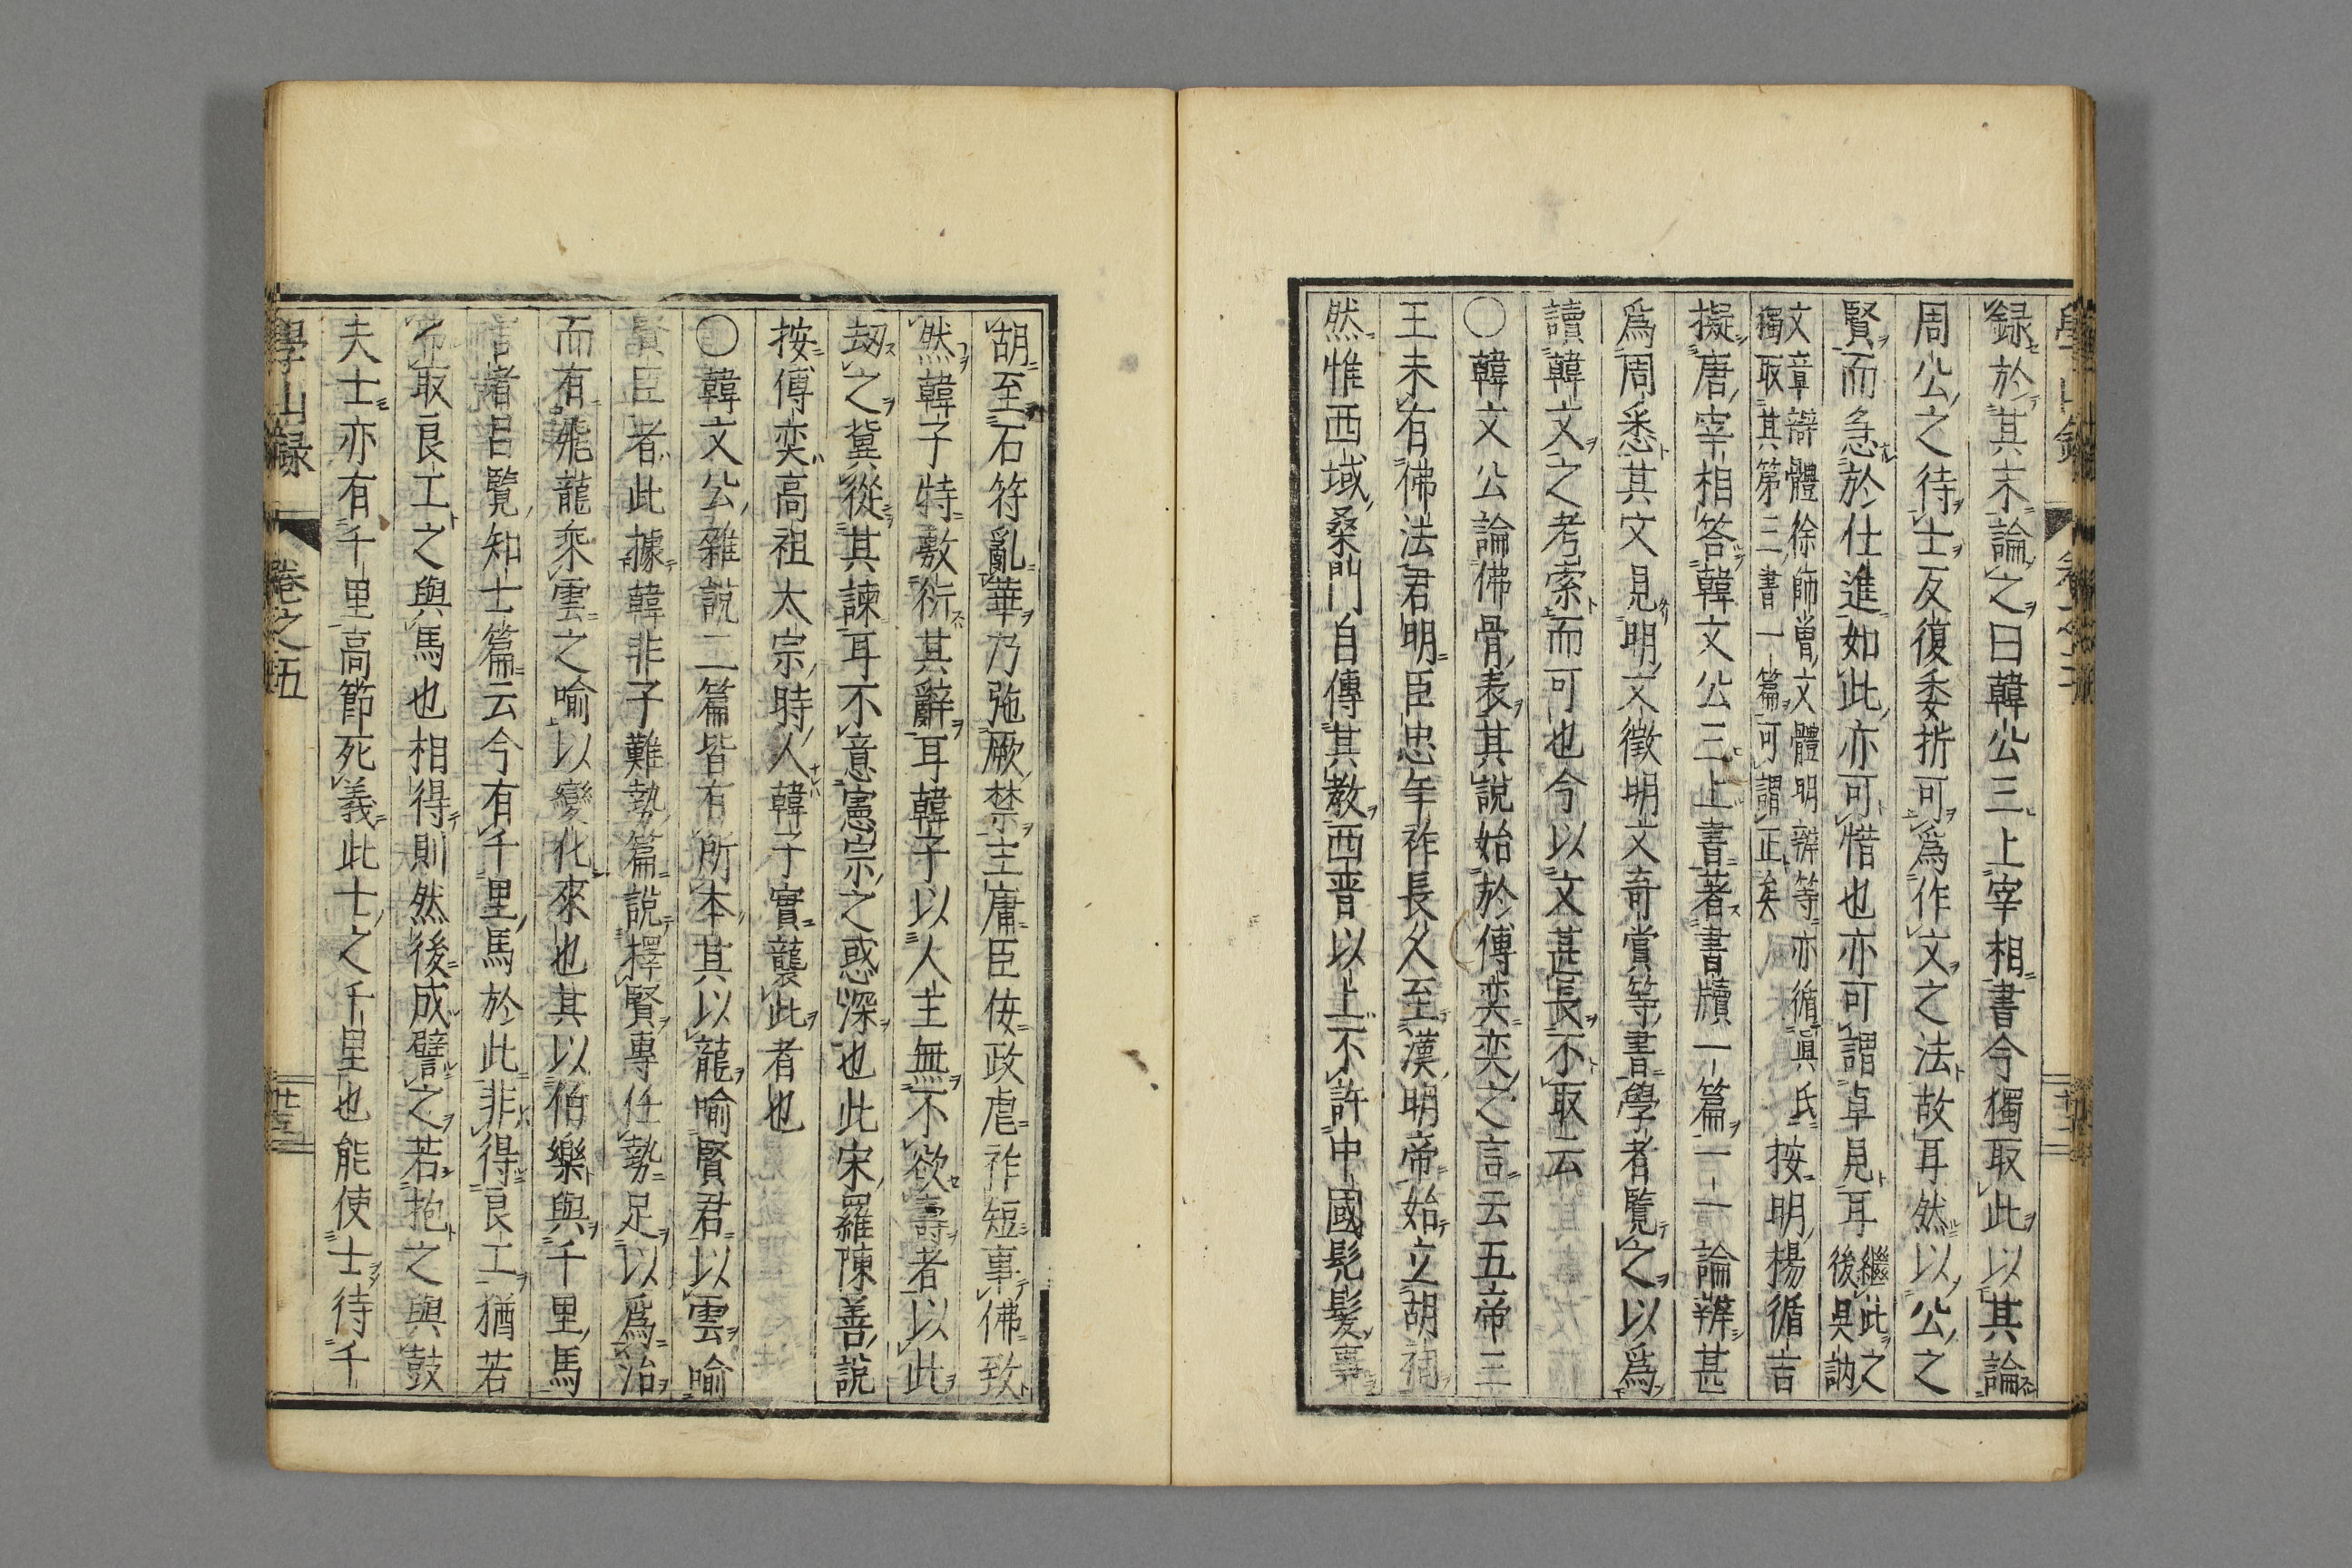 録於其末論之曰韓公三上宰相書今獨取此以其論
周公之待士反復委折可爲作文之法故耳然以公之
賢而急於仕進如此亦可惜也亦可謂卓見耳繼此之後吳訥
文章辯體徐師曾文體明辨等亦循眞氏獨取其第三書一篇可謂正矣按明楊循吉
擬唐宰相答韓文公三上書著書牘一篇一一論辨甚
爲周悉其文見明文徵明文奇賞等書學者覽之以爲
讀韓文之考索而可也今以文甚長不取云
〇韓文公論佛骨表其說始於傅奕奕之言云五帝三
王未有佛法君明臣忠年祚長久至漢明帝始立胡祠
然惟西域桑門自傳其教西晋以上不許中國髡髮事
胡至石符亂華乃弛厥禁主庸臣佞政虐祚短事佛致
然韓子特敷衍其辭耳韓子以人主無不欲壽者以此
刼之冀從其諫耳不意憲宗之惑深也此宋羅陳善說
按傅奕高祖太宗時人韓子實襲此者也
〇韓文公雜說二篇皆有所本其以龍喻賢君以雲喻
賢臣者此據韓非子難勢篇說擇賢專任勢足以爲治
而有飛龍乘雲之喻以變化來也其以伯樂與千里馬
言者呂覽知士篇云今有千里馬於此非得良工猶若
弗取良工之與馬也相得則然後成譬之若抱之與鼓
夫士亦有千里高節死義此士之千里也能使士待千
學山録　卷之五　廿三